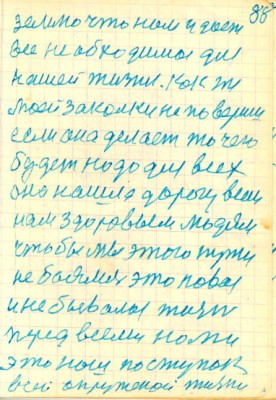 86
земло что нам и дает
все не обходимое для
нашей жизни. как ж
моей закалки не поверим
если она делает то чего
будет надо для всех
она нашла дорогу всем
нам здоровым людям
чтобы мы этого пути
не боялися это новая
и не бывалая жизнь
перед всеми нами
это наш поступок
всей окружной жизни